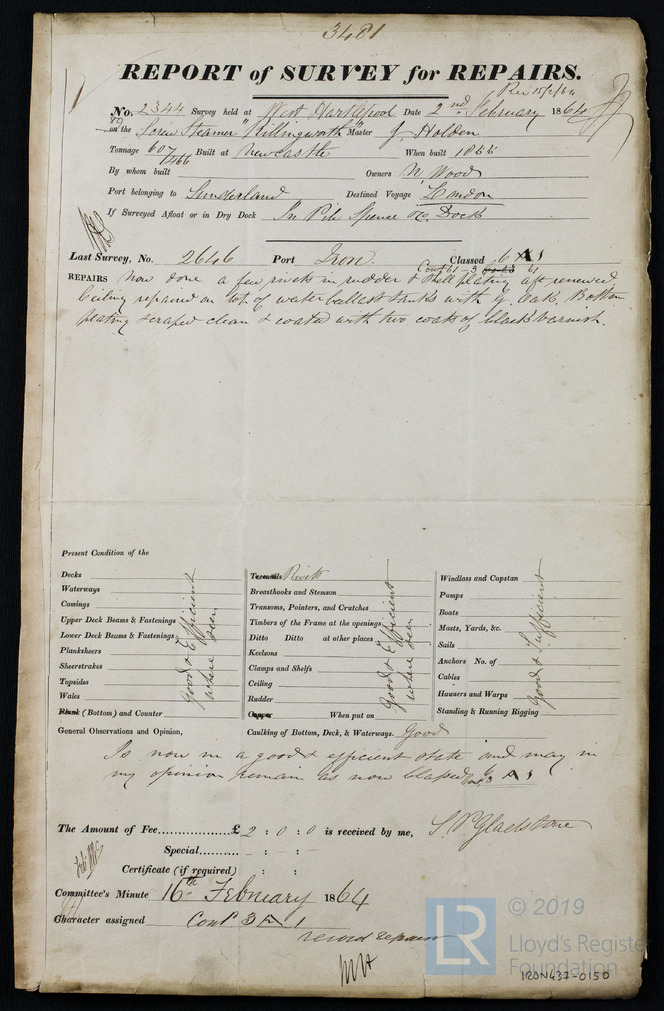 3481
REPORT of SURVEY for REPAIRS.
Rec 15/2/64
No. 2344 Survey held at West Hartlepool Date 2nd February 1864
on the Screw Steamer "Killingworth" Master J. Holden
Tonnage 607/466 Built at Newcastle When built 1855
By whom built Owners N. Wood
Port belonging to Sunderland Destined Voyage London
If Surveyed Afloat or in Dry Dock In Pile Spence &Co. Dock
Last Survey, No. 2646 Port Iron Classed 6 A 1
Cont 61 - 3 61
REPAIRS Now done a few rivets in rudder & shell plating aft renewed
Ceiling repaired on top of water ballast tanks with Oak. Bottom
plating scraped clean & coated with two coats of black varnish.
Present Condition of the
Decks
Waterways
Comings
Upper Deck Beams & Fastenings
Lower Deck Beams & Fastenings
Planksheers
Sheerstrakes
Topsides
Wales
Plank (Bottom) and Counter
Good & Efficient
where seen
Treenails Rivets
Breasthooks and Stemson
Transoms, Pointers, and Crutches
Timbers of the Frame at the openings
Ditto Ditto at other places
Keelsons
Clamps and Shelfs
Ceiling
Rudder
Copper When put on
Good & Efficient
where seen
Windlass and Capstan
Pumps
Boats
Masts, Yards, &c.
Sails
Anchors No. of
Cables
Hawsers and Warps
Standing & Running Rigging
Good & Sufficient
General Observations and Opinion, Caulking of Bottom, Deck, & Waterways. Good
Is now in a good & efficient state and may in
my opinion remain as now Classed Cont 3 A 1
The Amount of Fee.................. £ 2 : 0 : 0 is received by me, S. P. Gladstone
Special.......... - : - : -
Certificate (if required) : :
Committee's Minute 16th February 1864
Character assigned Cont 3 A 1
record repairs
LR
© 2019
Lloyd's Register
Foundation
IRON437-0150